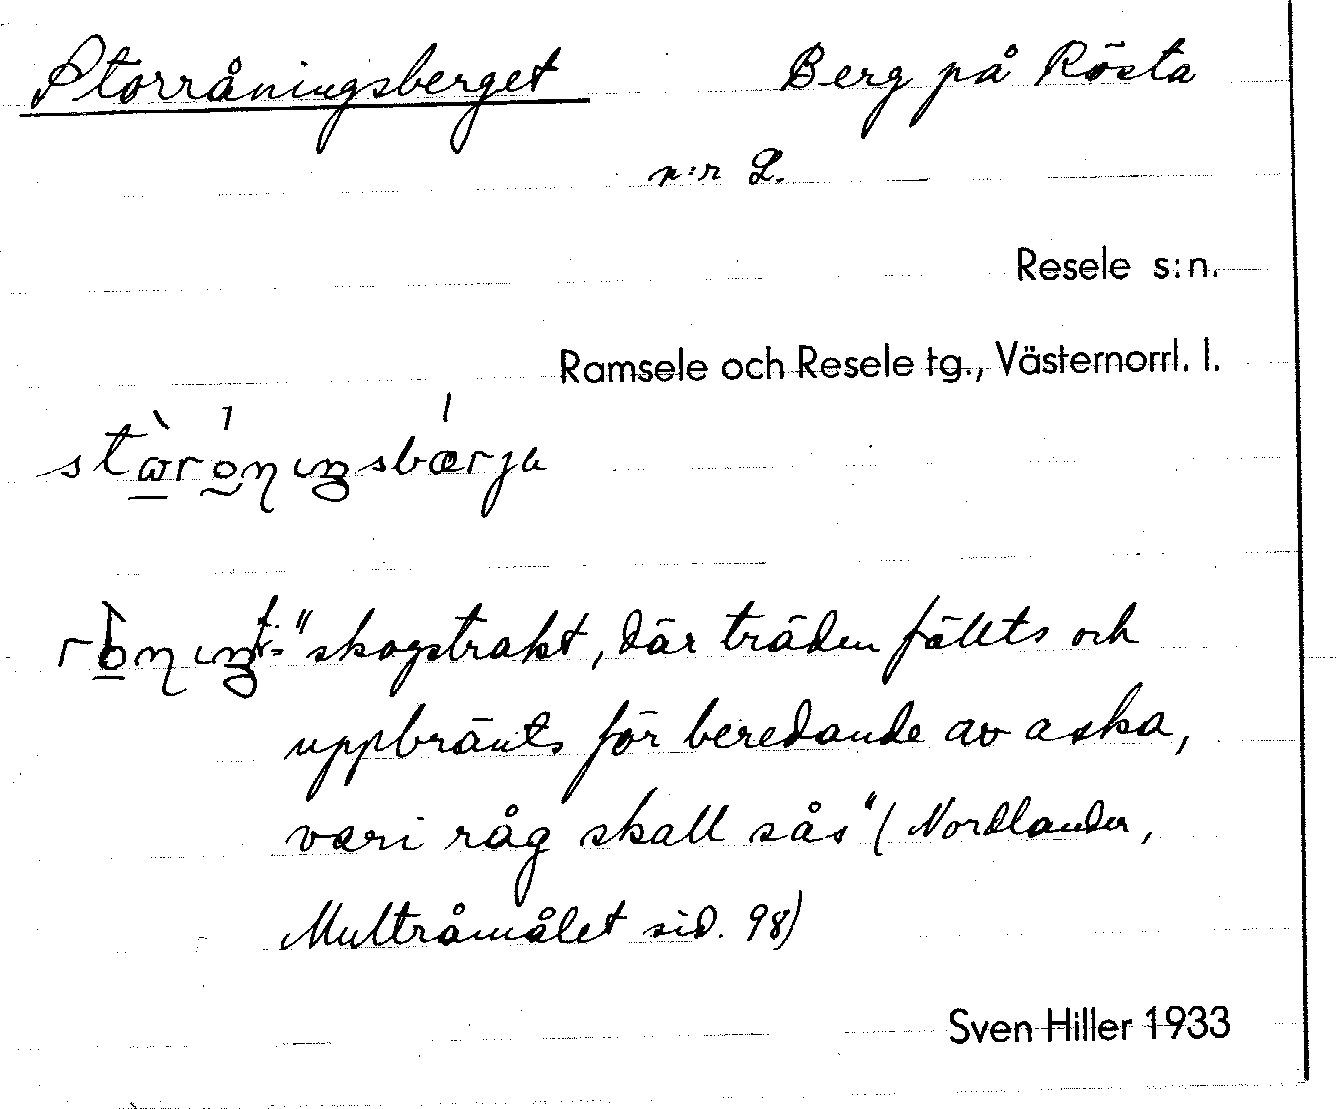 Storråningsberget Berg på Rösta
n:r 2.
Resele s:n.
Ramsele och Resele tg., Västernorrl. l.
"skogstrakt, där träden fällts och
uppbränts för beredande av aska,
vari råg skall sås" (Nordlander,
Multråmålet sid. 98)
Sven Hiller 1933